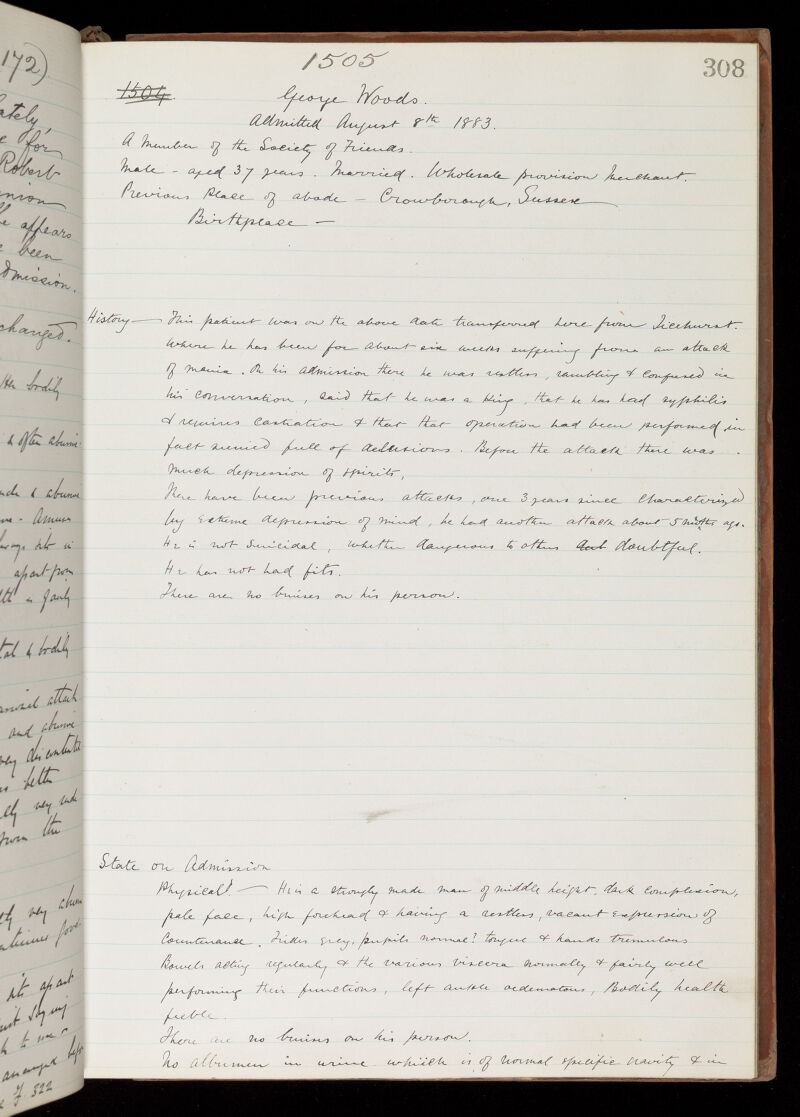 172)
ately,
e for
Robert
nion
he appears
e been
dmission.
changed.
Her bodily
& often abusive
rude & abusive
always sits in
apart from
tal & bodily
attack
and abusive
very discontented
is better
ely very rude
from the
ely very abusive
sits apart
not saying
1505
308
1504.
George Woods.
Admitted August 8th 1883.
A Member of the Society of Friends.
Male - aged 37 years. Married. Wholesale provision Merchant.
Previous Place of abode - Crowborough, Sussex
Birthplace -
History - This patient was on the above date transferred here from Ticehurst.
where he has been for about six weeks suffering from an attack
of mania. On his admission there he was restless, rambling & confused in
his conversation, said that he was a King, that he has had syphilis
& requires castration & that that operation had been performed, in
fact seemed full of delusions. Before the attack there was
much depression of spirits,
There have been previous attacks, one 3 years since characterized
by extreme depression of mind, he had another attack about 5 months ago.
He is not suicidal, whether dangerous to others doubtful.
He has not had fits.
There are no bruises on his person.
State on Admission
Physical - He is a strongly made man of middle height, dark complexion,
pale face, high forehead & having a restless, vacant expression of
countenance. Irides grey, pupils normal? tongue & hands tremulous
Bowels acting regularly & the various viscera normally & fairly well
performing their functions, left ankle oedematous, Bodily health
feeble.
There are no bruises on his person.
No albumen in urine which is of normal specific gravity & in